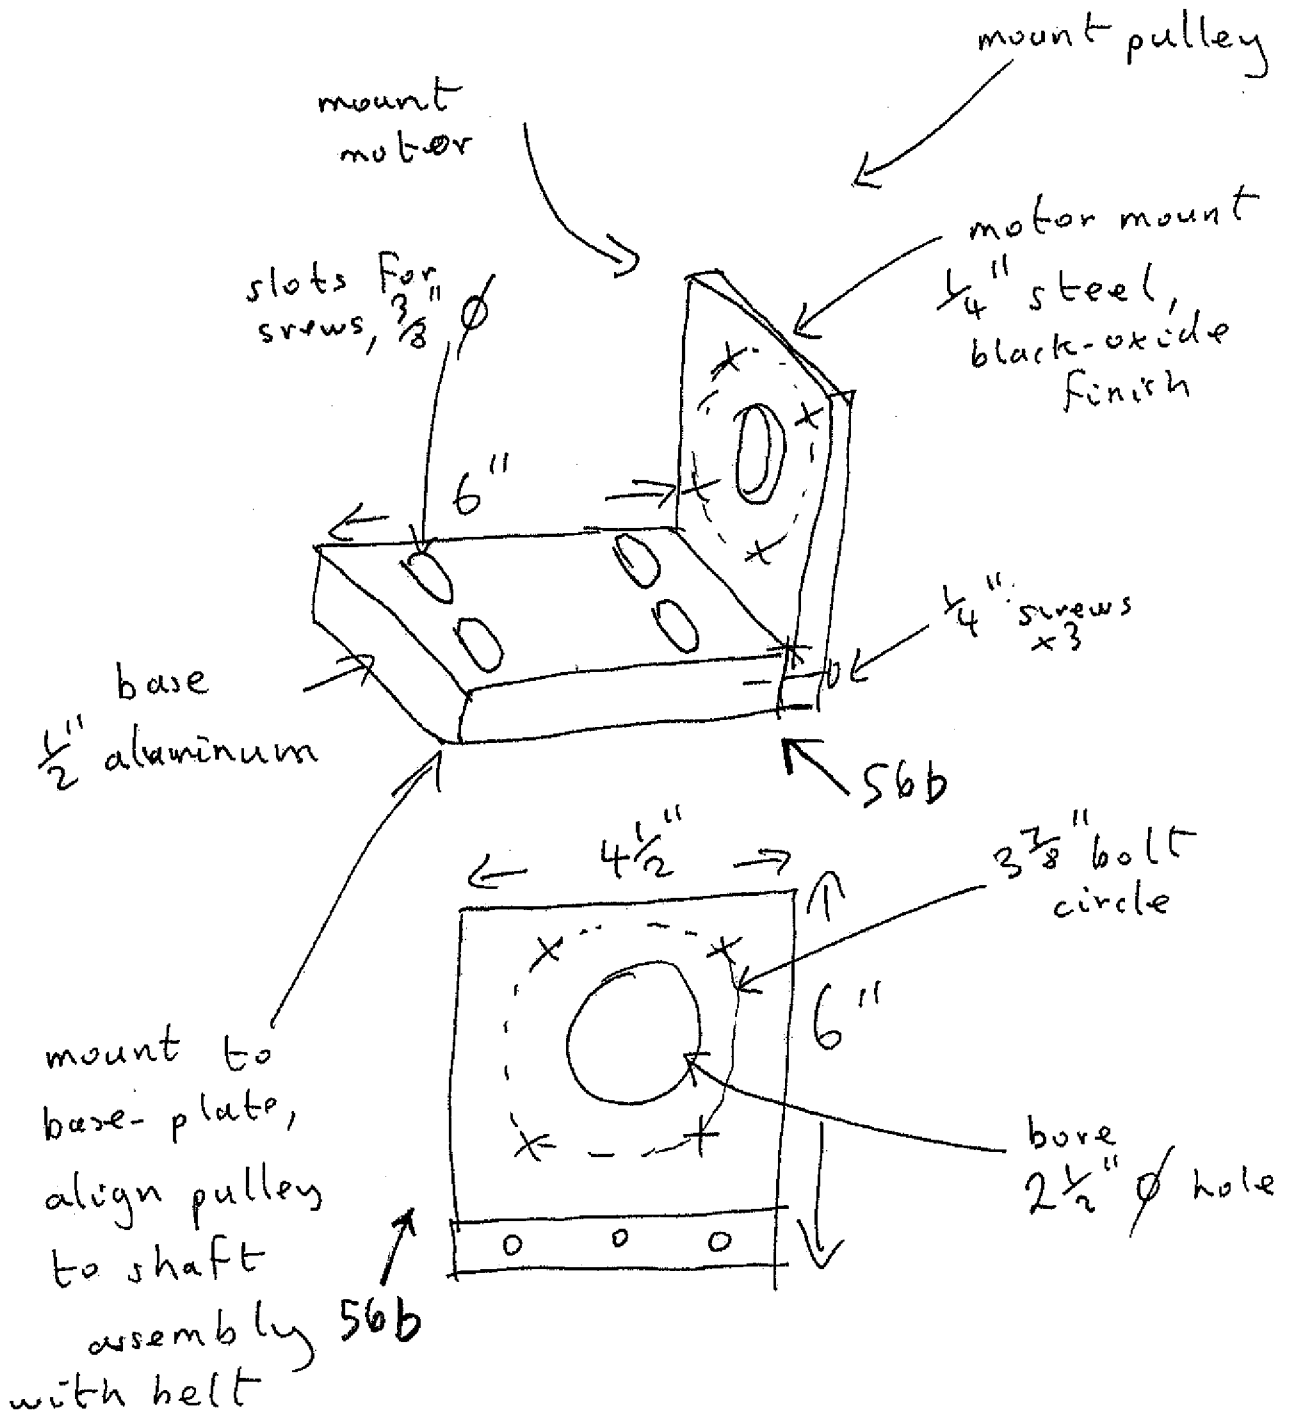 mount pulley
mount
motor
motor mount
1/4" steel,
black-oxide
finish
slots for
srews, 3/8" Ø
6"
1/4" screws
x3
base
1/2" aluminum
56b
4 1/2"
3 7/8" bolt
circle
6"
mount to
base-plate,
align pulley
to shaft
assembly
with belt
bore
2 1/2" Ø hole
56b